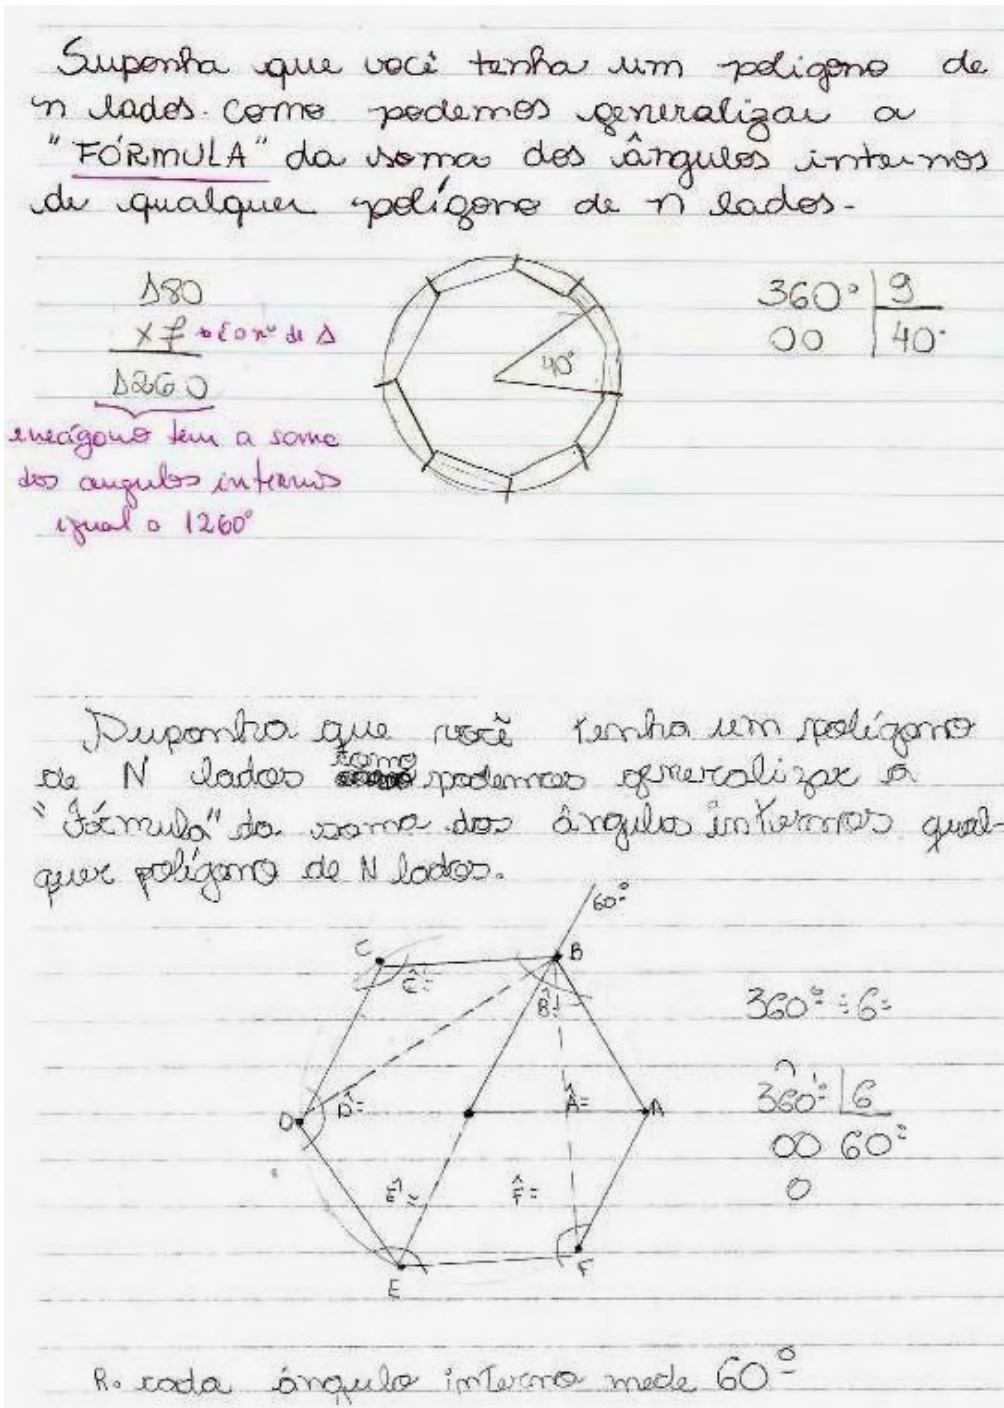 Suponha que você tenha um poligono de
n lados. como podemos generalizar a
"FÓRMULA" da soma dos ângulos internos
de qualquer polígono de n lados.
180
x7 → é o nº de Δ
1260
eneágono tem a soma
dos angulos internos
igual a 1260°
40°
360° 9
00 40°
Suponha que você tenha um polígono
de N lados como podemos generalizar a
"Fórmula" da soma dos ângulos internos qual-
quer polígono de N lados.
60º
C B
Ĉ=
B̂=
360º ÷ 6=
D D̂= Â= A
360º 6
00 60º
0
Ê= F̂=
E F
R. cada ângulo interno mede 60º